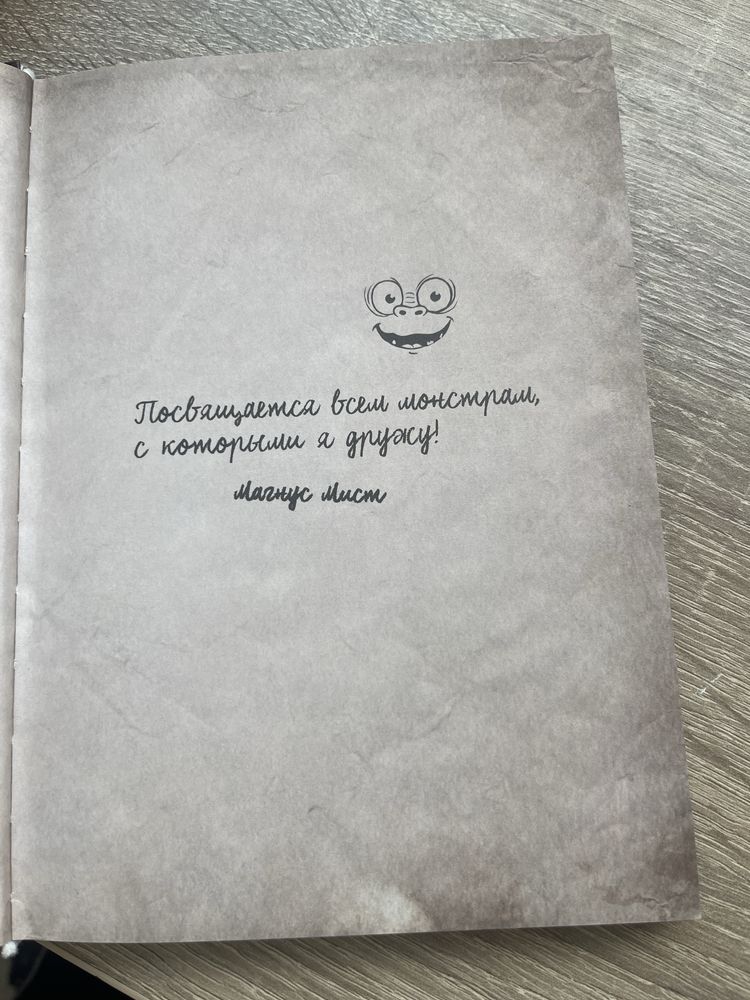 Посвящается всем монстрам,
с которыми я дружу!
Магнус Мист